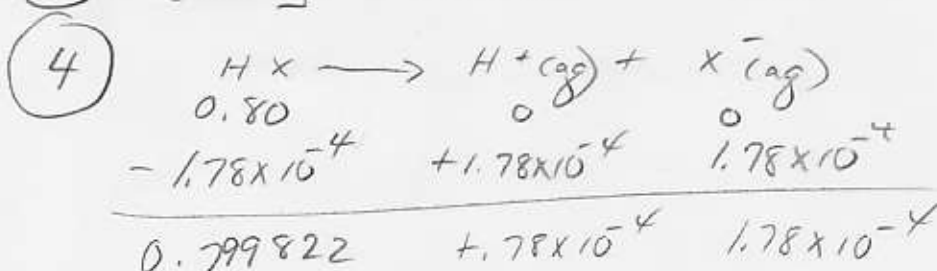 4
HX → H+(aq) + X-(aq)
0.80 0 0
- 1.78x10-4 +1.78x10-4 1.78x10-4
0.799822 +.78x10-4 1.78x10-4